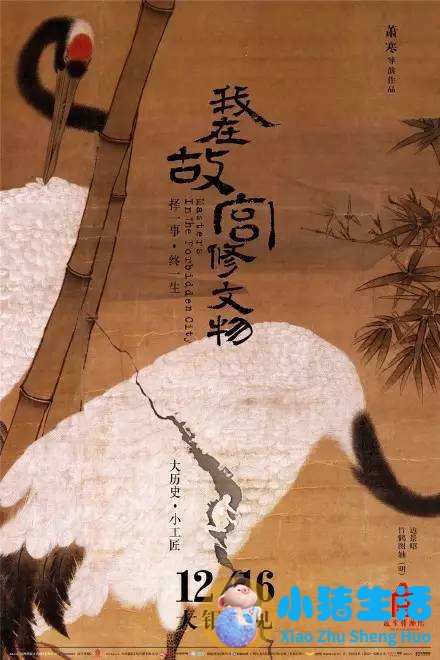 萧寒导演作品
我在故宫修文物
Masters
In The Forbidden City
择一事·终一生
大历史·小工匠
边景昭
竹鹤图轴（明）
12/16
大银
见
故宫博物院
小猪生活
Xiao Zhu Sheng Huo